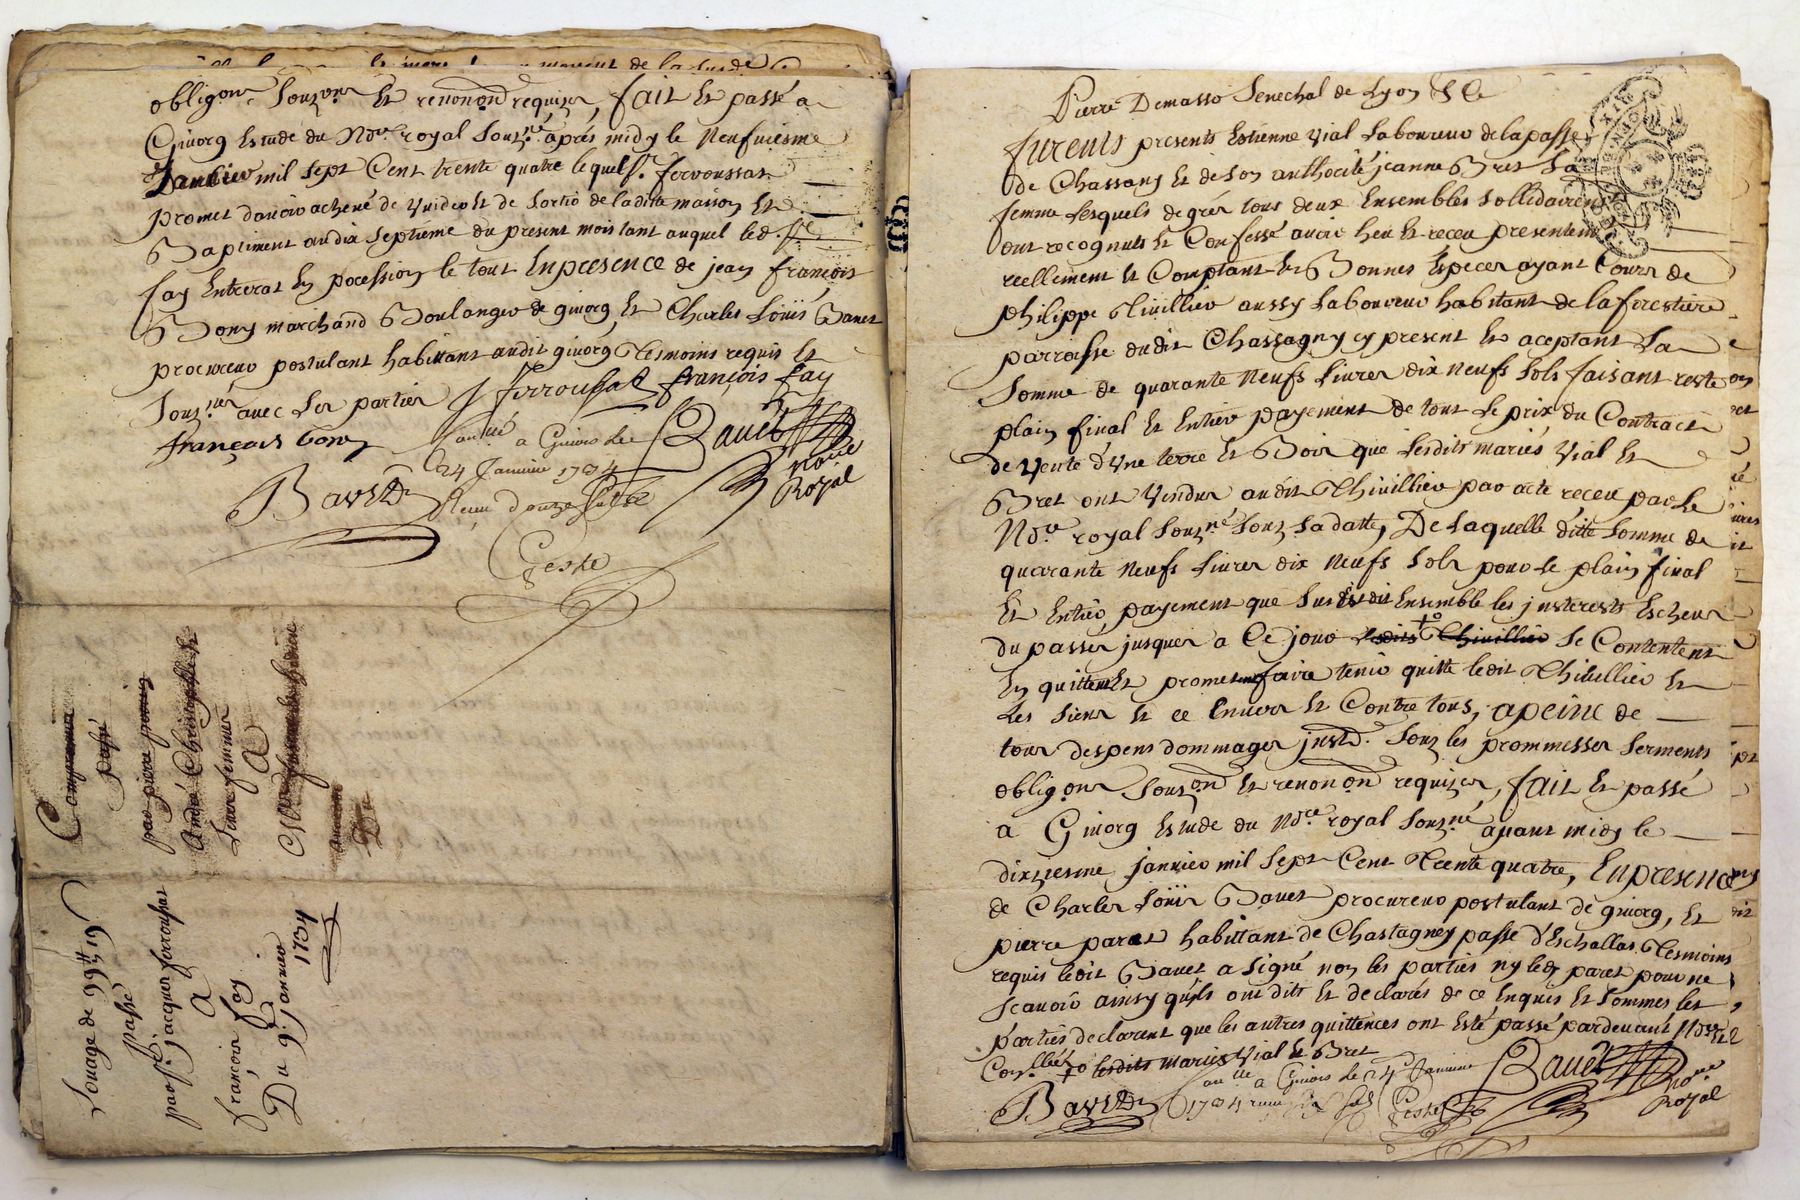 obligons Souzons Et renonond requizes, fait Et passé a
Givorg Estude du No.re royal Souz.né après midy le Neufviesme
Janvier mil sept Cent trente quatre lequel Sr. ferroussat
promet d'avoir achevé de Vuider Et de Sortir de la ditte maison Et
Baptiment au dix septieme du present mois tant auquel led. Sr.
fay Entrerat En pocession le tout En presence de jean françois
Bony marchand Boulanger de givorg, Et Charles Loüis Bavet
procureur postulant habittant audit givorg Tesmoins requis Et
Souz.nés avec Les parties J ferroussat françois fay
françois bony
Bavet
a Givors le
24 Janvier 1734
Reçu douze sols
Geste
Bavet
No.re
Royal
Compromis
passé
par piere
André
Leurs femmes
A
Du
Louage de 99# 19s
passé
par Sr. jacques ferroussat
A
françois fay
Du 9e. janvier
1734
Pierre Demasso Senechal de Lyon &c
furents presents Estienne Vial Laboureur de la passe
de Chassany Et de Son authorité jeanne Bret Sa
femme Lesquels de grés tous deux Ensembles Sollidairem
ont recognuts Et Confessé avoir heu Et receu presentem
reellement Et Comptant En Bonnes Especes ayant Cours de
philippe Thivillier aussy Laboureur habitant de la forestiere
parroisse dudit Chassagny cy present Et aceptant La
Somme de quarante Neufs Livres dix neufs Sols faisant reste
plain final Et Entier payement de tout Le prix du Contract
de Vente d'Vne terre Et Bois que Lesdits mariés Vial Et
Bret ont Vendus audit Thivillier par acte receu par Le
No.re royal Souz.né Souz Sa datte, De Laquelle ditte Somme de
quarante Neufs Livres dix neufs Sols pour Le plain final
Et Entier payement que Susdit Ensemble les jnterests Escheus
du passés jusques a Ce jour lesdits Thivillier Se Contentent
En quittent Et promettent faire tenir quitte ledit Thivillier Et
Les Siens Et ce Envers Et Contre tous, apeine de
tous despens dommages jnst.d. Souz les prommesses Serments
obligons Souzon Et renonond requizes, fait Et passé
a Givorg Estude du No.re royal Souz.né avant midy le
dixziesme janvier mil Sept Cent Trente quatre, En presence
de Charles Loüis Bavet procureur postulant de givorg, Et
pierre paret habittant de Chastagney passe d'Eschallas Tesmoins
requis ledit Bavet a Signé non les parties ny led. paret pour ne
Scavoir ainsy qu'ils ont dits Et declarés de ce Enquis Et Sommes les
parties declarent que les autres quittences ont Esté passé pardevant
lesdits mariés Vial Et Bret
Bavet a Givors le 24 Janvier
1734 Geste
Bavet
No.re
Royal